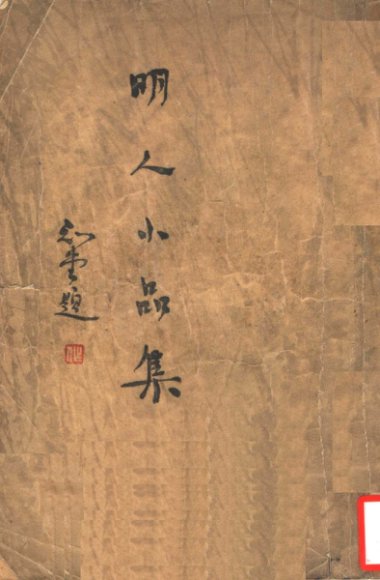 明人小品集
知堂題